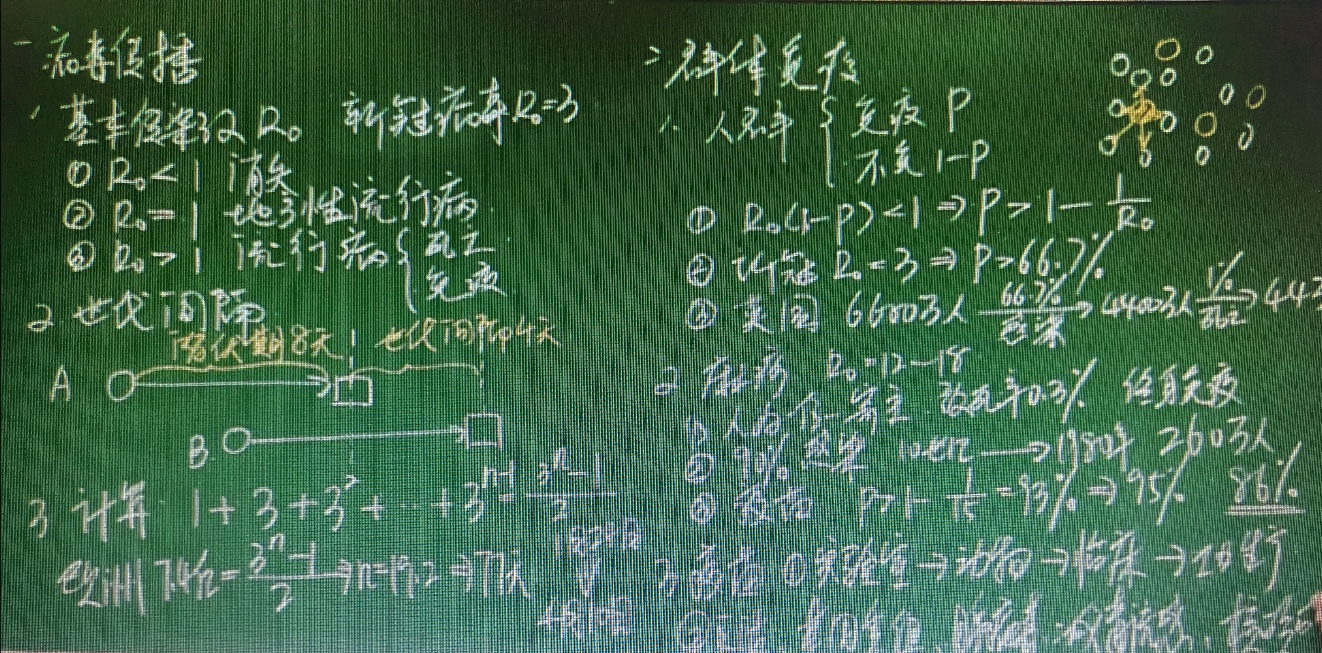 一 病毒传播
1、基本传染数 R₀ 新冠病毒 R₀=3
① R₀<1 消失
② R₀=1 地方性流行病
③ R₀>1 流行病{死亡 免疫
2. 世代间隔
潜伏期8天 世代间隔4天
A
B
3 计算 1+3+3²+…+3ⁿ⁻¹=(3ⁿ-1)/2
欧洲 7.4亿=(3ⁿ-1)/2⇒n=19.2⇒77天
二 群体免疫
1、人群{免疫 P 不免 1-P
① R₀(1-P)<1⇒P>1-1/R₀
② 新冠 R₀=3⇒P>66.7%
③ 英国 6600万人 66.7%感染→4400万人 1%死亡→44万
2 麻疹 R₀=12-18
① 人为唯一宿主 致死率0.3% 终身免疫
② 90%感染 →1980年 260万人
③ 疫苗 P>1-1/15=93%⇒95% 86%
3 疫苗 ① 实验室→动物→临床
②